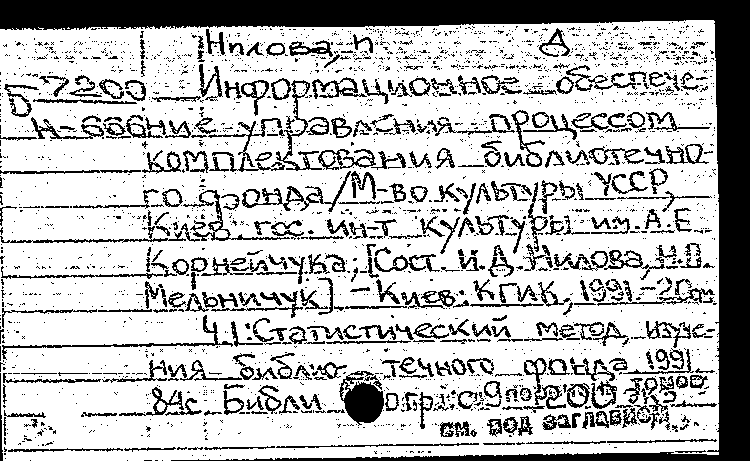 Нилова, И Д
Б-7200 Информационное обеспече-
Н-666 ние управления процессом
комплектования библиотечно-
го фонда/М-во культуры УССР,
Киев. гос. ин-т культуры им. А.Е
Корнейчука; [Сост. И.Д. Нилова, Н.П.
Мельничук] – Киев: КГИК, 1991.–20см
Ч.1: Статистический метод изуче-
ния библиотечного фонда 1991
84с Библи 200 экз
томов
см. под заглавием